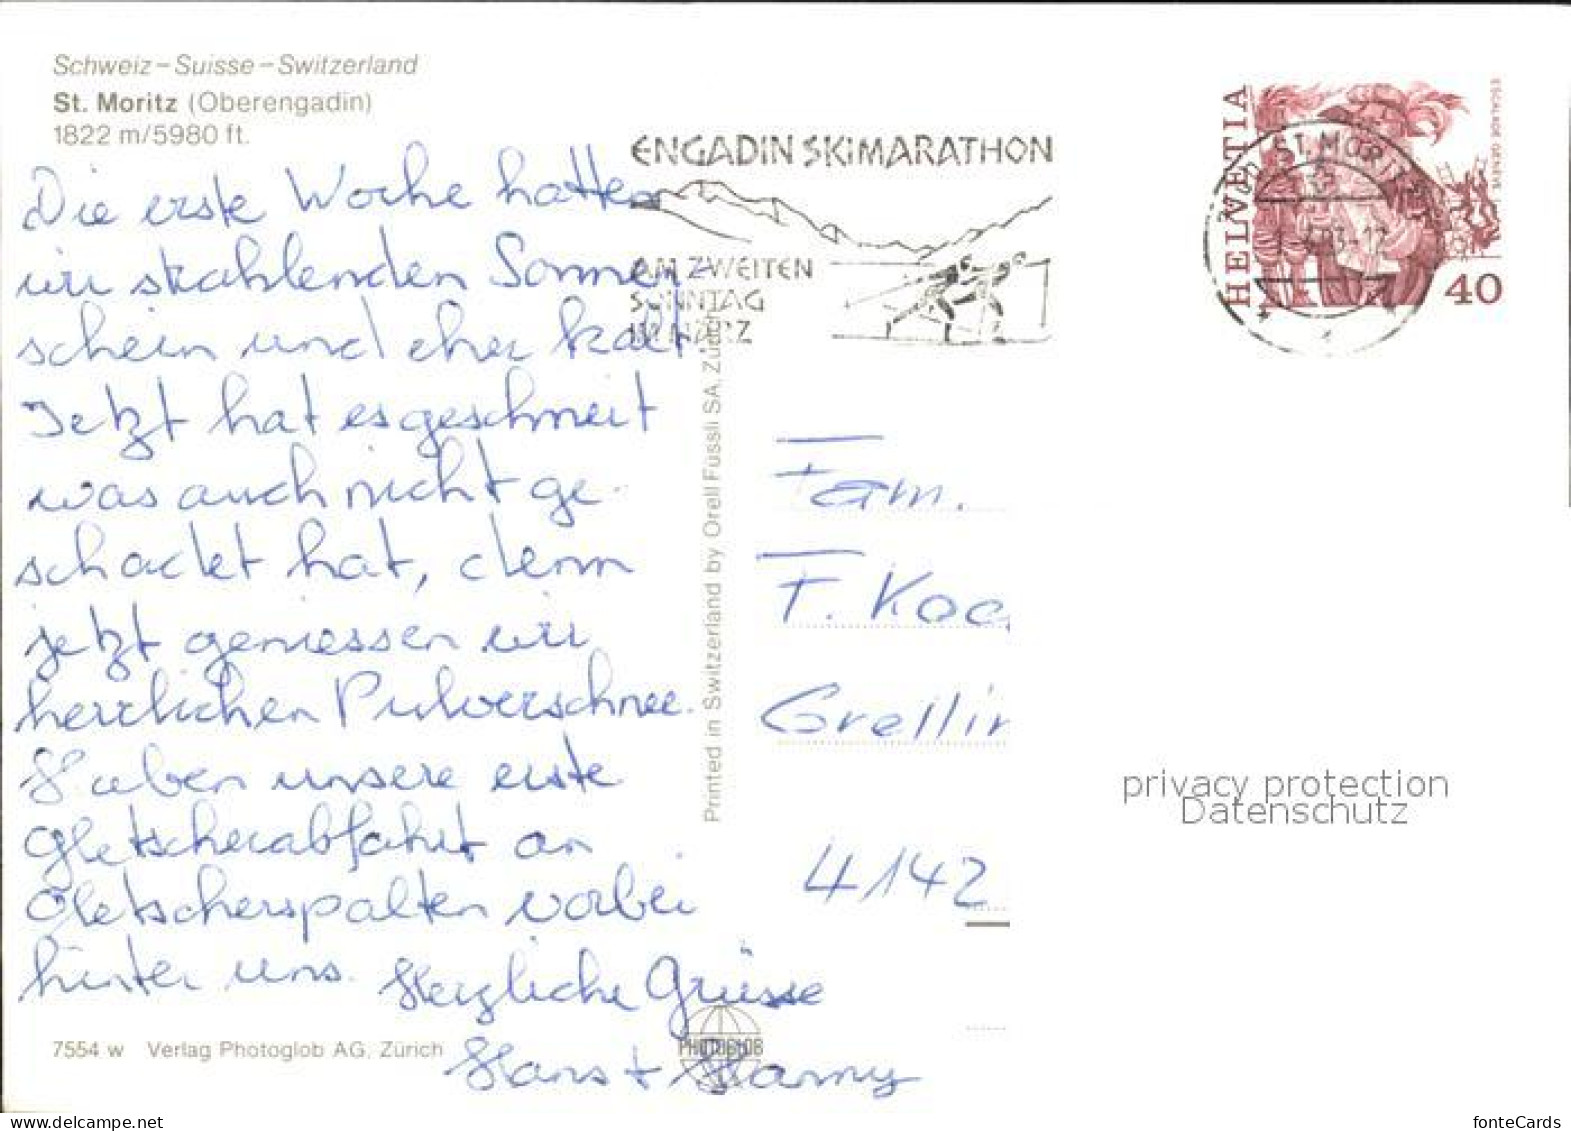 Schweiz – Suisse – Switzerland
St. Moritz (Oberengadin)
1822 m/5980 ft.
Die erste Woche hatten
wir strahlenden Sonnen-
schein und eher kalt
Jetzt hat es geschneit
was auch nicht ge-
schadet hat, denn
jetzt geniessen wir
herrlichen Pulverschnee.
Haben unsere erste
Gletscherabfahrt an
Gletscherspalten vorbei
hinter uns. Herzliche Grüsse
Hans +
7554 w Verlag Photoglob AG, Zürich
PHOTOGLOB
Printed in Switzerland by Orell Füssli SA, Zürich
ENGADIN SKIMARATHON
AM ZWEITEN
SONNTAG
IM MÄRZ
HELVETIA
ESCALADE GENEVE
40
ST. MORITZ
Fam.
F. Koc
Grellin
4142
privacy protection
Datenschutz
www.ansichtskartenversand.com
fonteCards